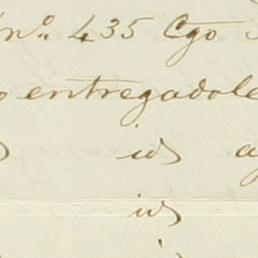 nº. 435 Cgo
entregadole
id
id